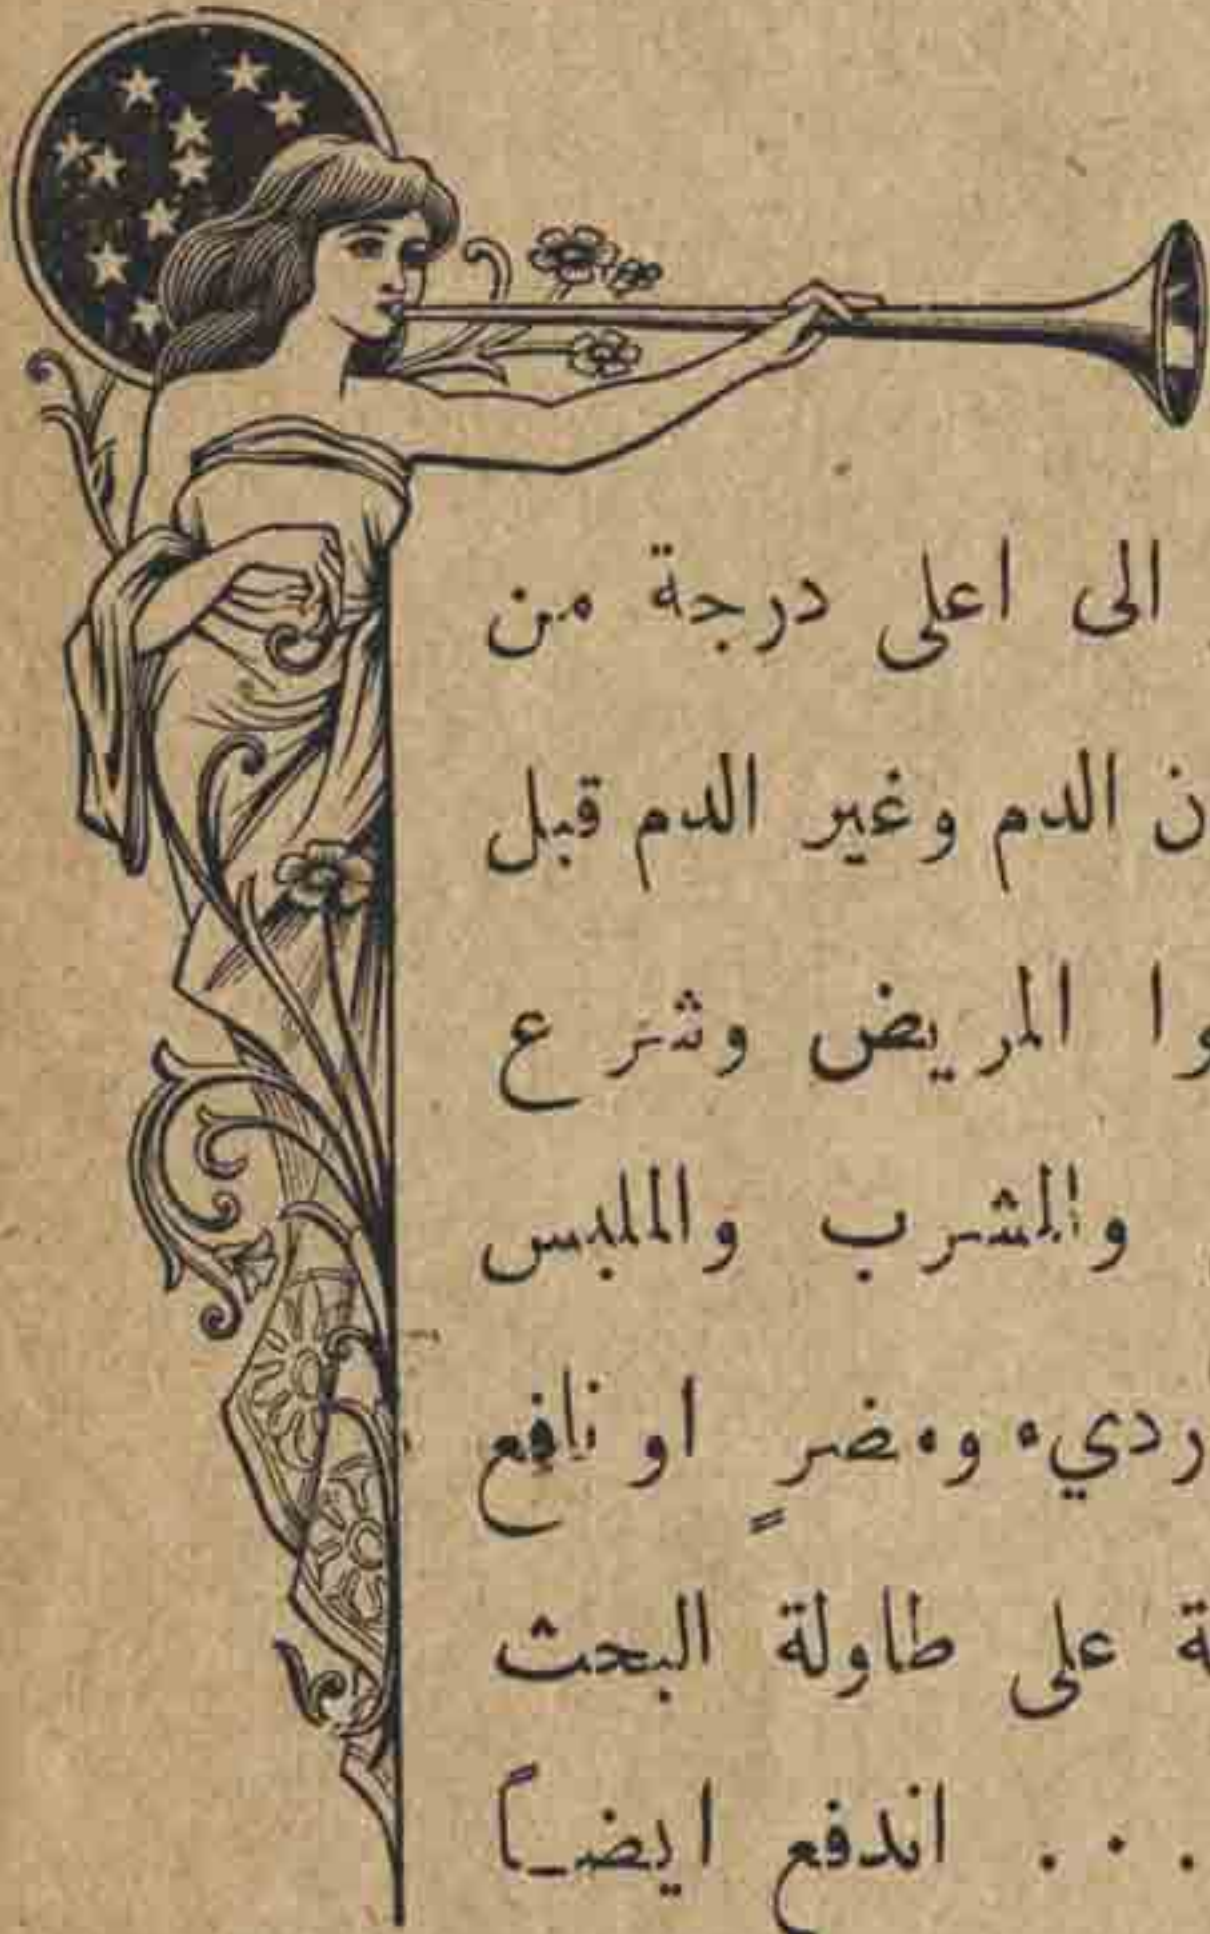 الى اعلى درجة من
الدم وغير الدم قبل
المريض وشرع
والمشرب والملبس
رديء ومضرٍ او نافع
على طاولة البحث
. . . اندفع ايضاً